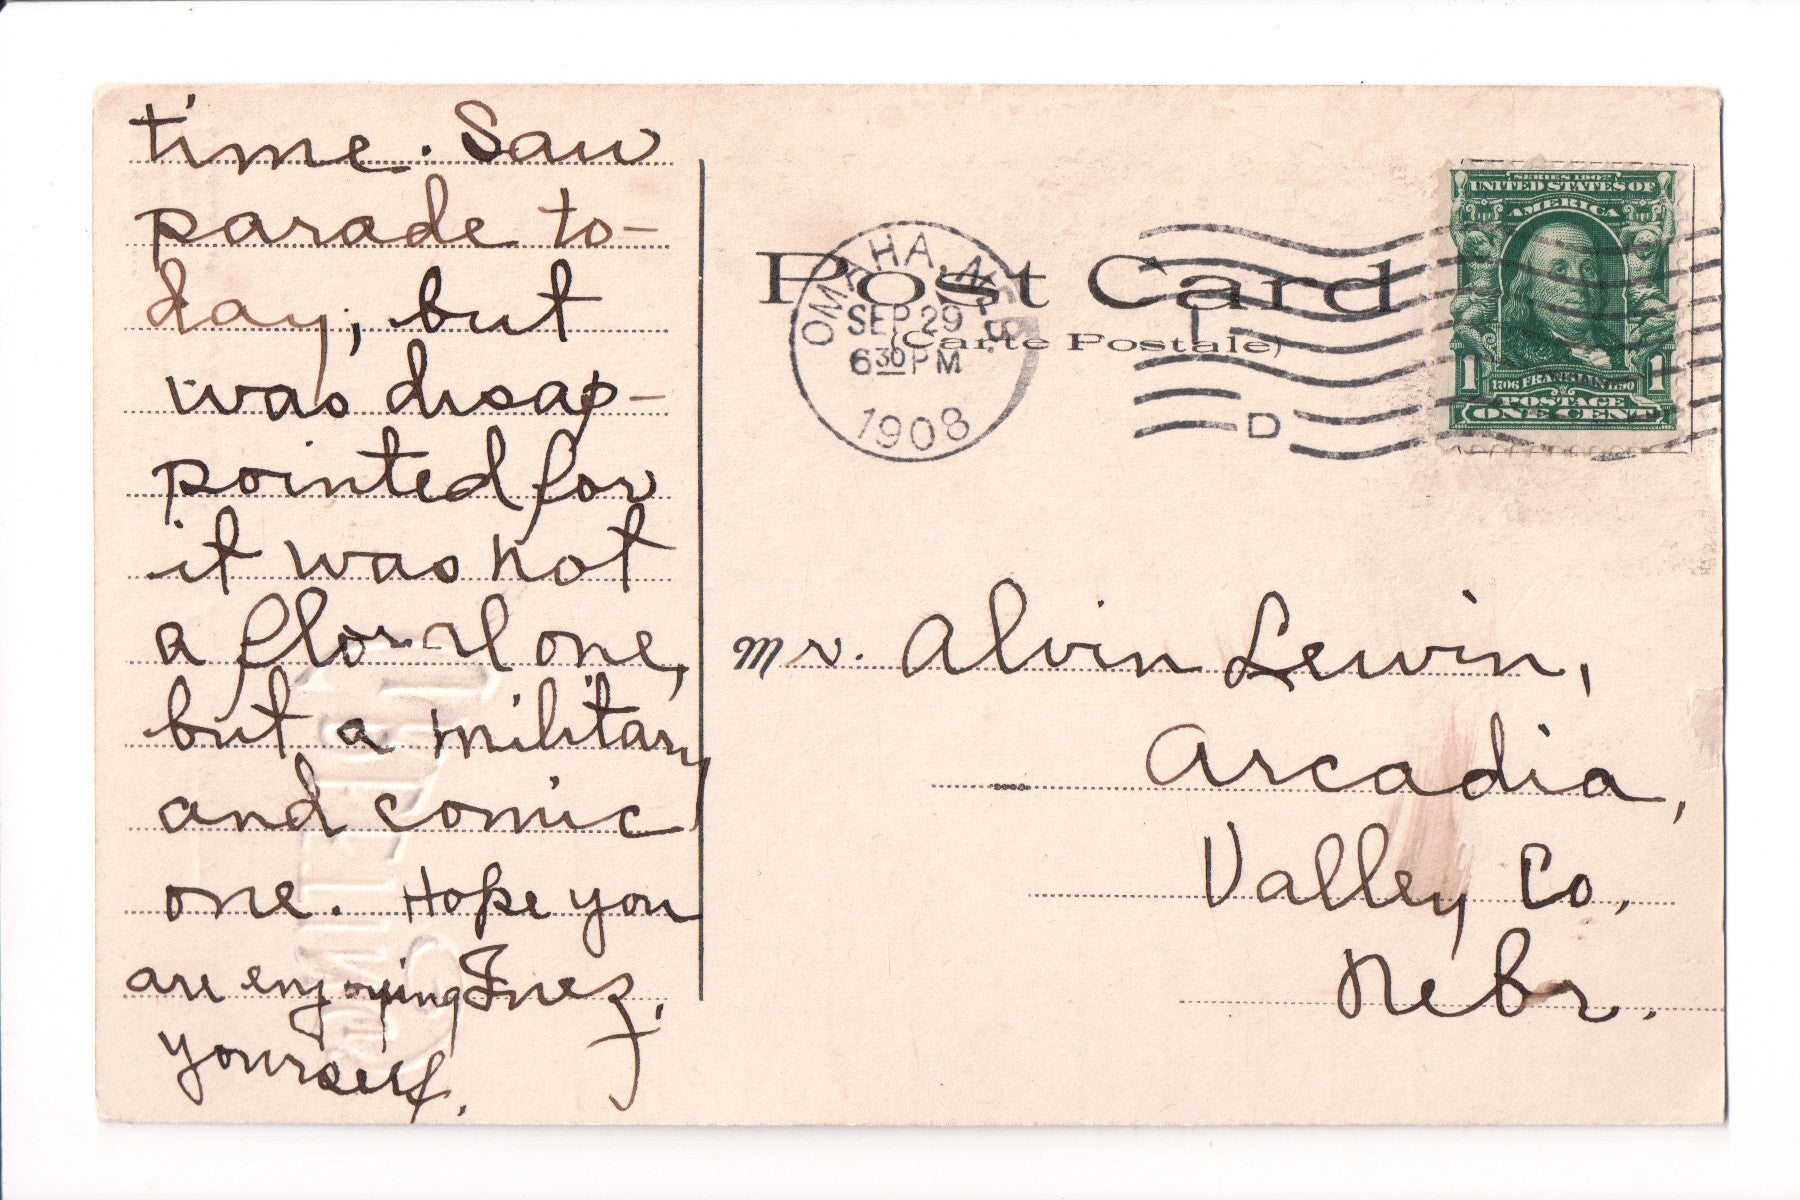 time. Saw
parade to-
day, but
was disap-
pointed for
it was not
a floral one,
but a military
and comic
one. Hope you
are enjoying
yourself.
Inez.
Post Card
(Carte Postale)
OMAHA, NEB.
SEP 29
6 30 PM
1908
D
SERIES 1902
UNITED STATES OF
AMERICA
1 1706 FRANKLIN 1790 1
POSTAGE
ONE CENT
Mr. Alvin Lewin,
Arcadia,
Valley Co,
Nebr.